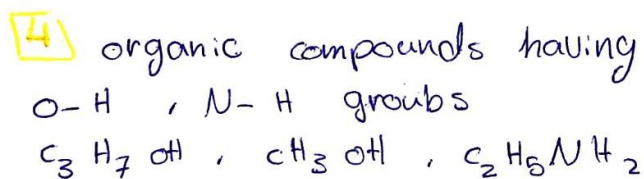 4 organic compounds having
O-H , N-H groubs
C3 H7 OH , CH3 OH , C2 H5 NH2